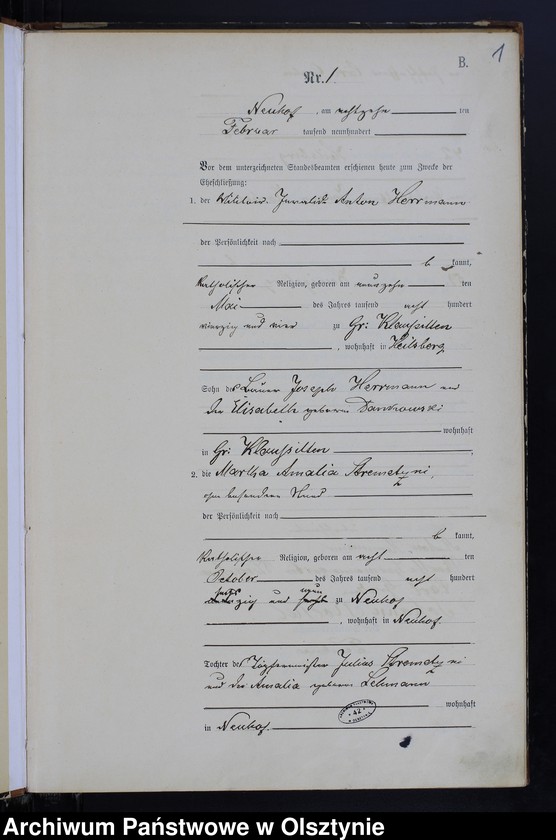 B.
1
Nr. 1
Neuhof, am achtzehn ten
Februar tausend neunhundert
Vor dem unterzeichneten Standesbeamten erschienen heute zum Zwecke der
Eheschließung:
1. der Militair. Invalide Anton Herrmann
der Persönlichkeit nach
be kannt,
katholischer Religion, geboren am neunzehn ten
Mai des Jahres tausend acht hundert
vierzig und vier zu Gr: Klaussitten
, wohnhaft in Heilsberg
Sohn des Bauer Joseph Herrmann und
der Elisabeth geborene Dankowski
wohnhaft
in Gr: Klaussitten
2. die Martha Amalia
ohne besonderen Stand
der Persönlichkeit nach
be kannt,
katholischer Religion, geboren am acht ten
October des Jahres tausend acht hundert
sechszig und neun zu Neuhof
, wohnhaft in Neuhof.
Tochter des Töpfermeister Julius
und der Amalia geborene Lehmann
wohnhaft
in Neuhof.
42
Archiwum Państwowe w Olsztynie